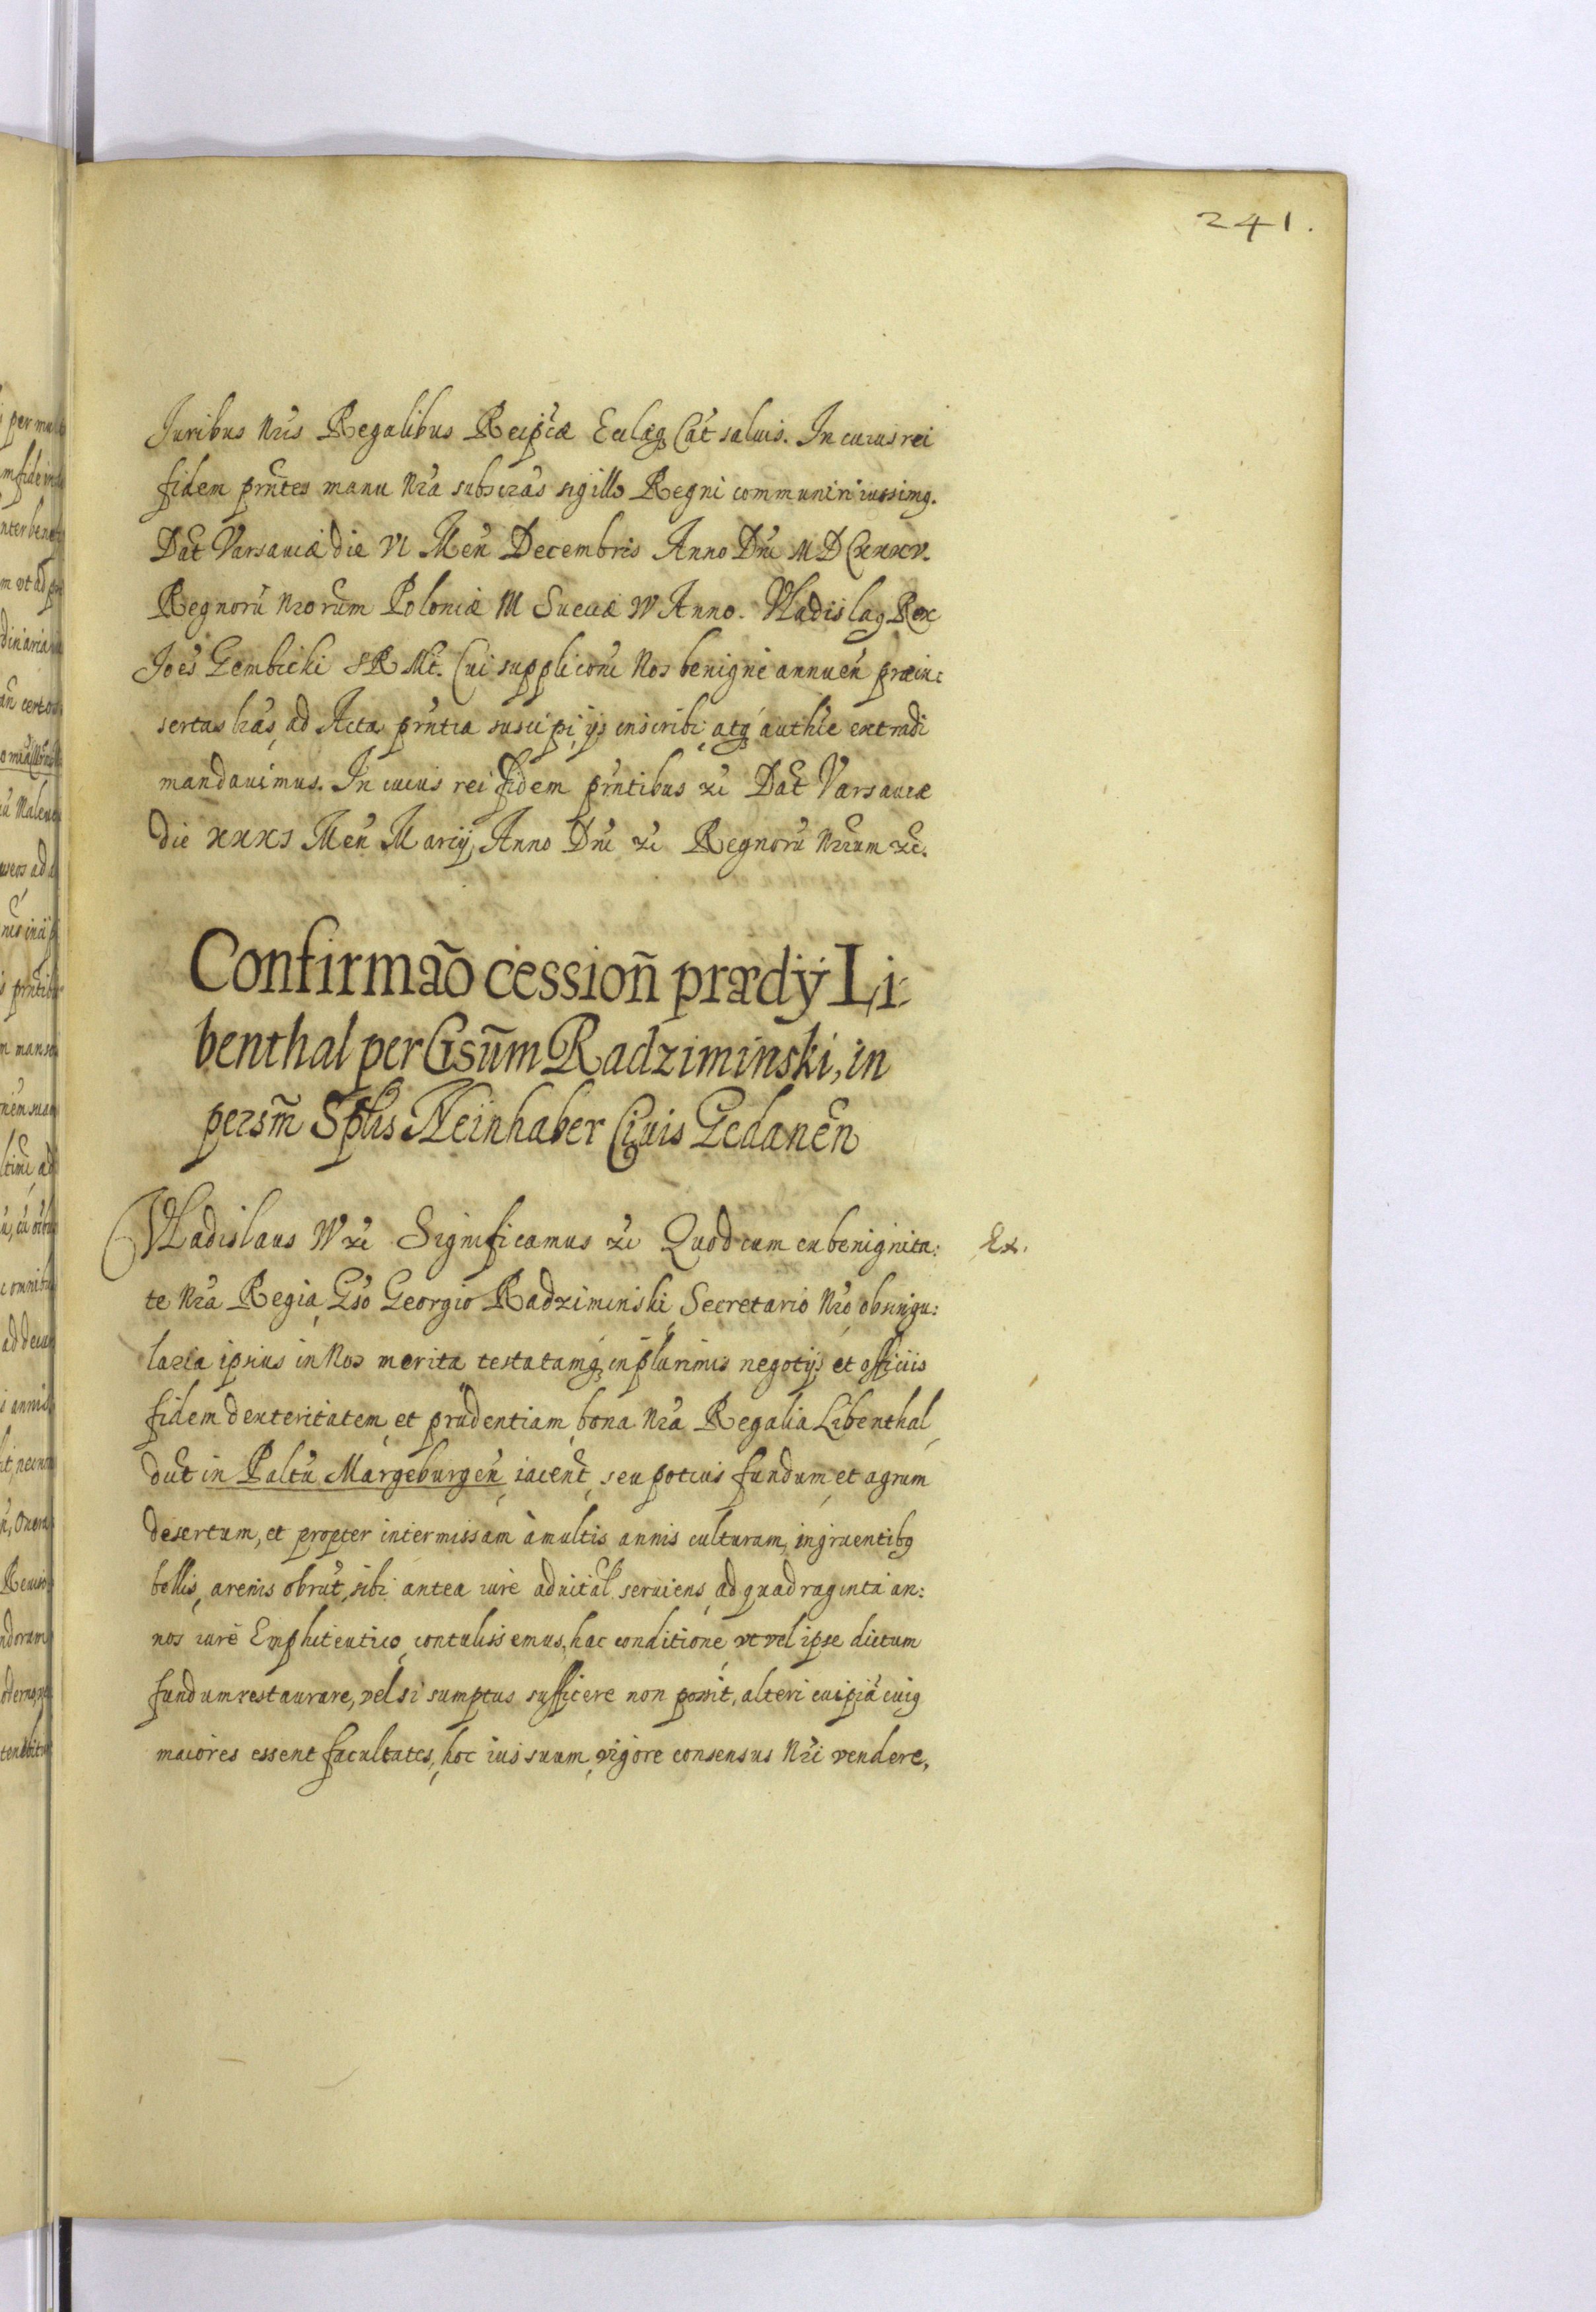 241.
Juribus Nris Regalibus Reipcæ Eccl[æ]q Cat saluis. In cuius rei
fidem prntes manu Nra subscras sigillo Regni communiri iussimq.
Dat Varsauiæ die VI Men Decembris Anno Dni MDCXXXV.
Regnorũ Nrorum Poloniæ III Sueciæ IV Anno. Vladislaq Rex
Joes Gembicki SR Mt. Cui suppliconi Nos benigne annuen præin:
sertas lras, ad Acta prntia suscipi, ijs inscribi, atq authce extradi
mandauimus. In cuius rei fidem prntibus xc Dat Varsauiæ
die XXXI Men Marcij, Anno Dni xc Regnorũ Nrrum xc.
Confirmão cessioñ prædÿ Li:
benthal per Gsũm Radziminski, in
persm̃ Spblis Neinhaber Ciuis Gedaneñ
Vladislaus IV xc Significamus xc Quod cum ex benignita:
Ex.
te Nra Regia, Gso Georgio Radziminski, Secretario Nro, ob singu:
laria ipsius in Nos merita testatamq, in plurimis negotijs et officiis
fidem dexteritatem, et prudentiam, bona Nra Regalia Libenthal,
dict in Paltu Margeburgen, iacent, seu potius fundum, et agrum
desertum, et propter intermissam à multis annis culturam, ingruentibq
bellis, arenis obrut, sibi antea iure aduital seruiens, ad quadraginta an:
nos iure Emphiteutico, contulissemus, hac conditione, vt vel ipse dictum
fundum restaurare, vel si sumptus sufficere non possit, alteri cuipiã cuiq
maiores essent facultates, hoc ius suum, vigore consensus Nri vendere,